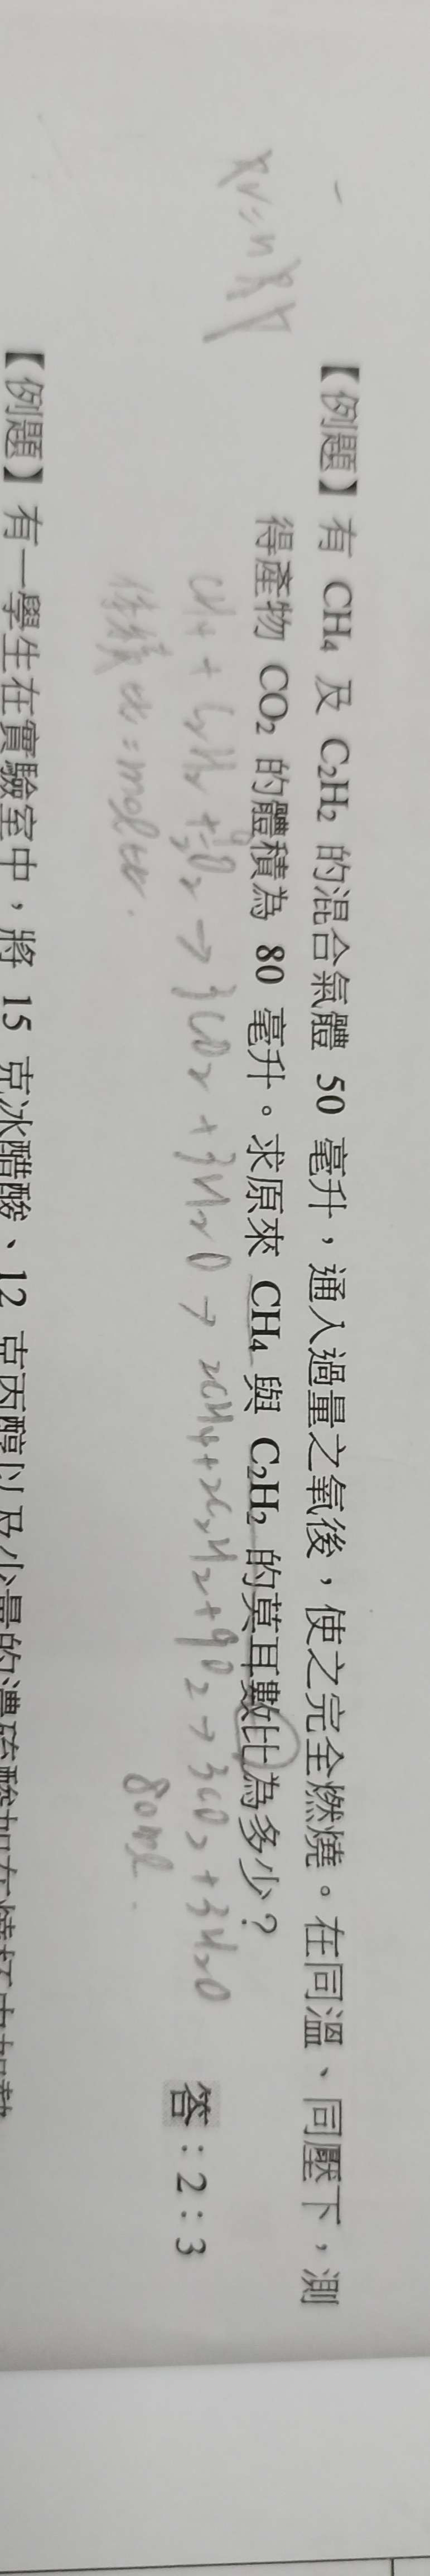 PV=nRT
【例題】有 CH₄ 及 C₂H₂ 的混合氣體 50 毫升，通入過量之氧後，使之完全燃燒。在同溫、同壓下，測
得產物 CO₂ 的體積為 80 毫升。求原來 CH₄ 與 C₂H₂ 的莫耳數比為多少？
CH₄ + C₂H₂ + 9/2 O₂ → 3CO₂ + 3H₂O → 2CH₄ + 2C₂H₂ + 9O₂ → 3CO₂ + 3H₂O
80ml.
體積比=mol比.
答：2：3
【例題】有一學生在實驗室中，將 15 克冰醋酸、12 克丙醇以及少量的濃硫酸加在燒杯中加熱